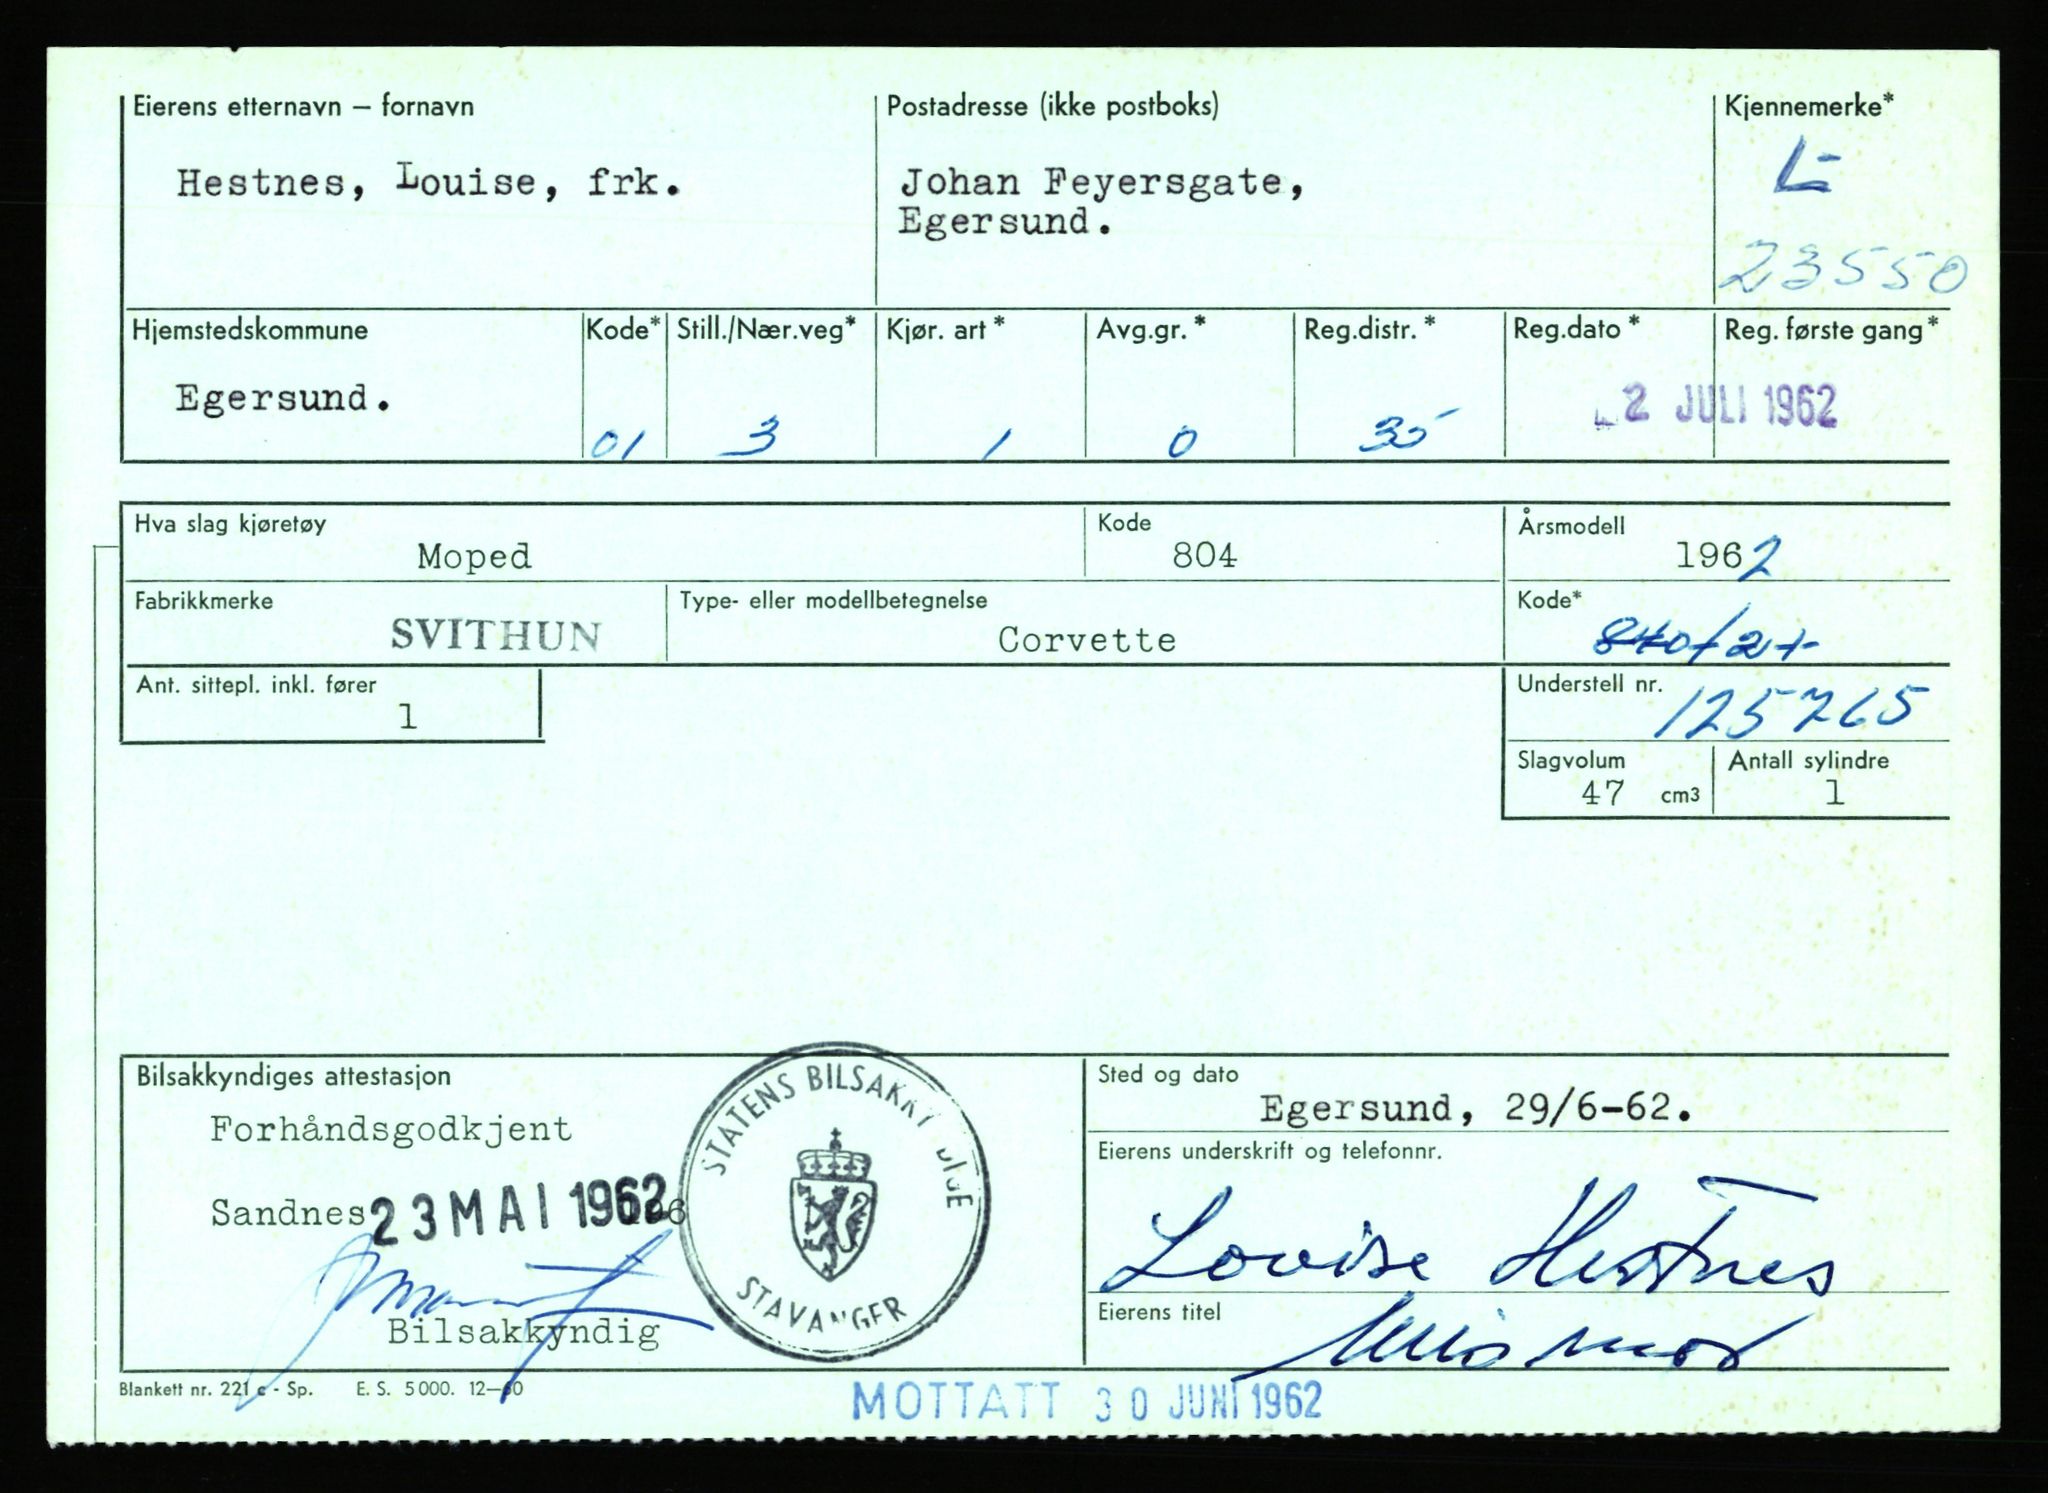 Eierens etternavn – fornavn
Postadresse (ikke postboks)
Kjennemerke*
Hestnes, Louise, frk.
Johan Feyersgate,
Egersund.
L-
23550
Hjemstedskommune
Kode*
Still./Nær.veg*
Kjør. art *
Avg.gr. *
Reg.distr. *
Reg.dato *
Reg. første gang*
Egersund.
01
3
1
0
35
2 JULI 1962
Hva slag kjøretøy
Kode
Årsmodell
Moped
804
1962
Fabrikkmerke
Type- eller modellbetegnelse
Kode*
SVITHUN
Corvette
Ant. sittepl. inkl. fører
1
Understell nr.
125765
Slagvolum
47 cm3
Antall sylindre
1
Bilsakkyndiges attestasjon
Forhåndsgodkjent
Sandnes 23 MAI 1962
Bilsakkyndig
STATENS BILSAKKY DIGE
STAVANGER
Sted og dato
Egersund, 29/6-62.
Eierens underskrift og telefonnr.
Louise Hestnes
Eierens titel
Blankett nr. 221 c - Sp. E. S. 5000. 12—60
MOTTATT 30 JUNI 1962